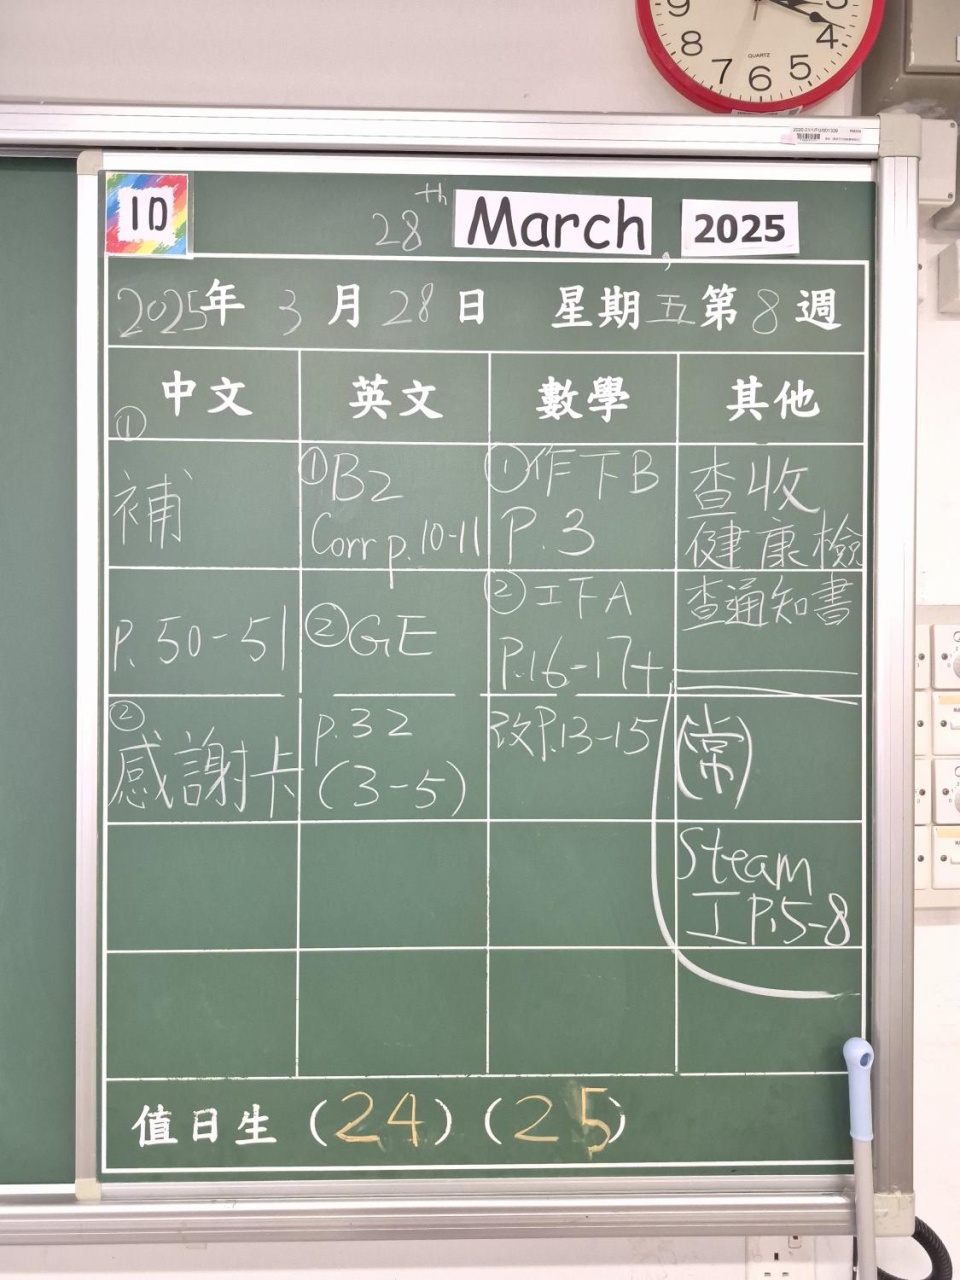 9
8
7
6
5
4
3
QUARTZ
1D
28th March, 2025
2025年 3月 28日 星期五 第8週
中文
①
補
P. 50-51
②
感謝卡
英文
①B2
Corr p. 10-11
②GE
p. 32
(3-5)
數學
①作下B
P. 3
②工下A
P. 16-17+
改P. 13-15
其他
查收
健康檢
查通知書
(常)
Steam
工P. 5-8
值日生 (24) (25)